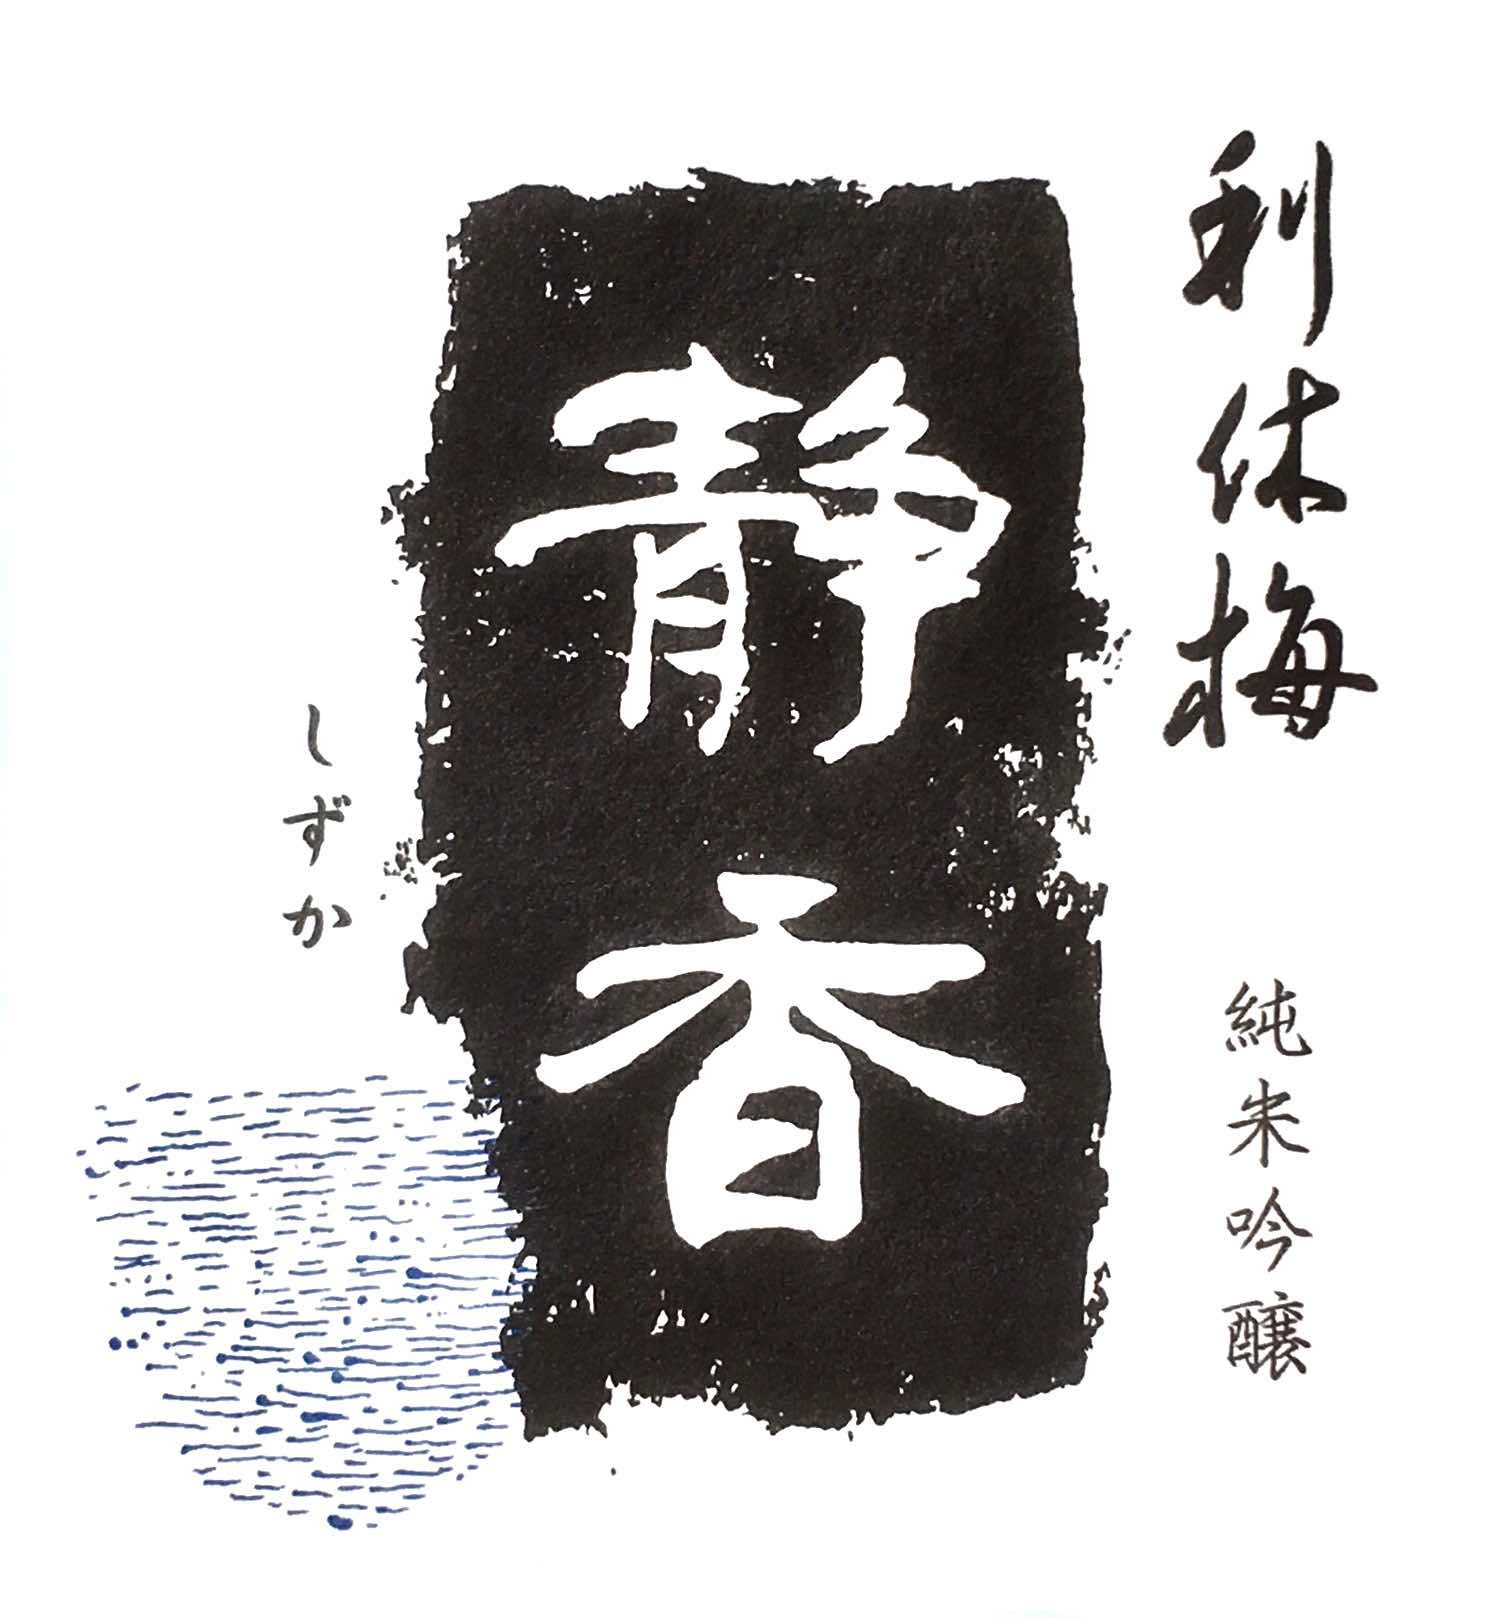 利休梅
純米吟醸
静香
しずか